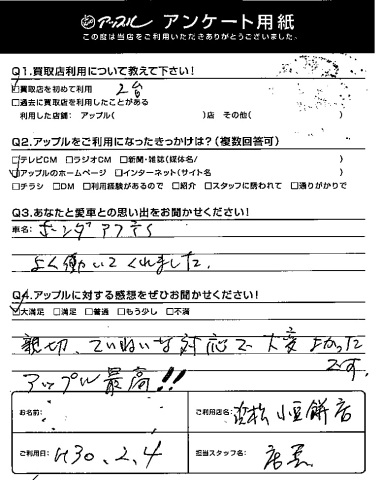 アップル アンケート用紙
この度は当店をご利用いただきありがとうございました。
Q1.買取店利用について教えて下さい!
☑買取店を初めて利用 2台
□過去に買取店を利用したことがある
利用した店舗: アップル( )店 その他( )
Q2.アップルをご利用になったきっかけは?(複数回答可)
□テレビCM □ラジオCM □新聞・雑誌(媒体名/ )
☑アップルのホームページ □インターネット(サイト名 )
□チラシ □DM □利用経験があるので □紹介 □スタッフに誘われて □通りがかりで
Q3.あなたと愛車との思い出をお聞かせください!
車名: ホンダアクティ
よく働いてくれました。
Q4.アップルに対する感想をぜひお聞かせください!
☑大満足 □満足 □普通 □もう少し □不満
親切、ていねいな対応で大変よかった
です。
アップル最高!!
お名前:
ご利用店名: 浜松小豆餅店
ご利用日: H30.2.4
担当スタッフ名: 店長